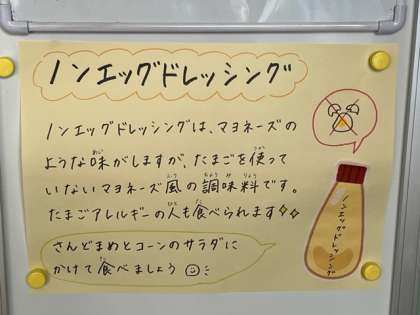 ノンエッグドレッシング
ノンエッグドレッシングは、マヨネーズの
ような味がしますが、たまごを使って
いないマヨネーズ風の調味料です。
たまごアレルギーの人も食べられます
さんどまめとコーンのサラダに
かけて食べましょう
ノンエッグドレッシング